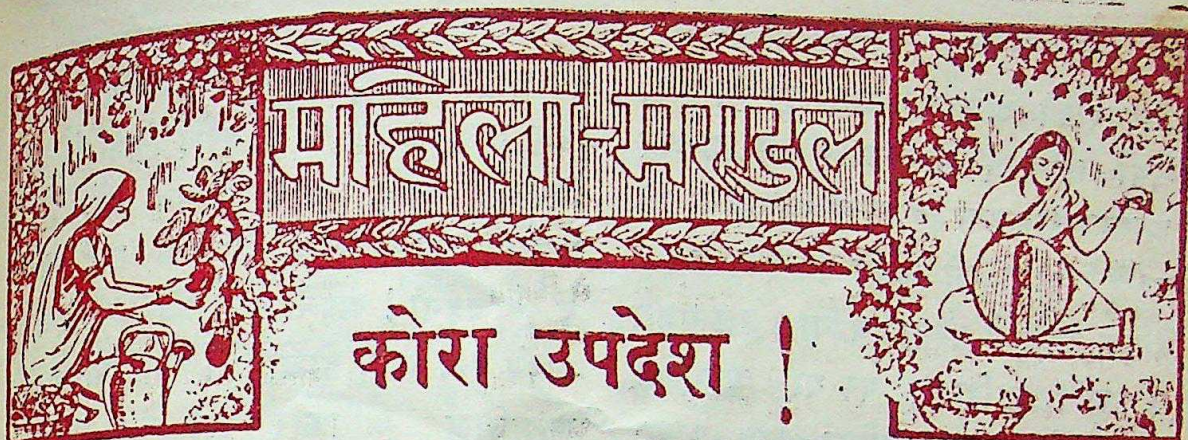 महिला-मण्डल
कोरा उपदेश !